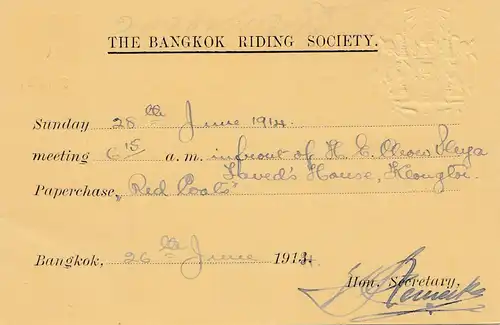 THE BANGKOK RIDING SOCIETY.
Sunday 28th June 1914.
meeting 6 15 a.m. in front of H. E. Chow Phya
Paperchase, „Red Coats" House, Klongtoi.
Bangkok, 26th June 1914.
Hon. Secretary,